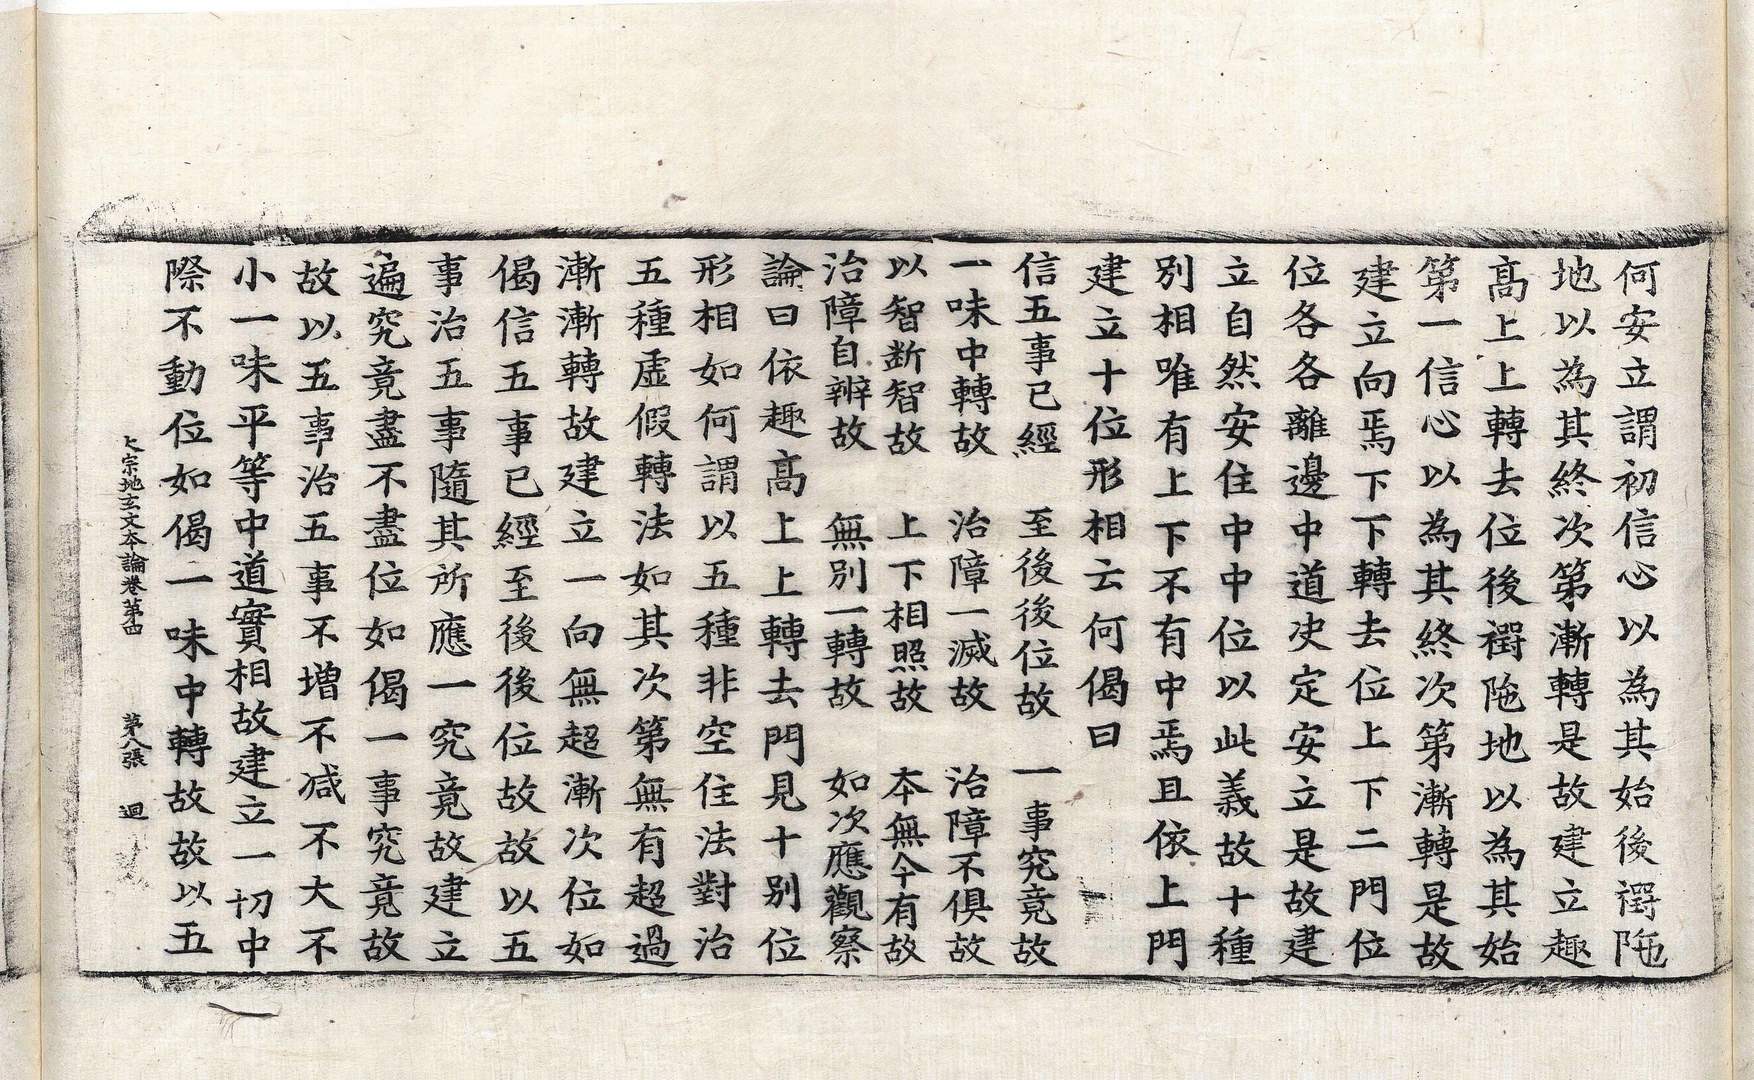 何安立謂初信心以為其始後禪陁
地以為其終次第漸轉是故建立趣
髙上上轉去位後禪陁地以為其始
第一信心以為其終次第漸轉是故
建立向焉下下轉去位上下二門位
位各各離邊中道决定安立是故建
立自然安住中中位以此義故十種
別相唯有上下不有中焉且依上門
建立十位形相云何偈曰
信五事已經　至後後位故　一事究竟故
一味中轉故　治障一滅故　治障不俱故
以智断智故　上下相照故　本無今有故
治障自辨故　無別一轉故　如次應觀察
論曰依趣髙上上轉去門見十別位
形相如何謂以五種非空住法對治
五種虛假轉法如其次第無有超過
漸漸轉故建立一向無超漸次位如
偈信五事已經至後後位故故以五
事治五事隨其所應一究竟故建立
遍究竟盡不盡位如偈一事究竟故
故以五事治五事不增不减不大不
小一味平等中道實相故建立一切中
際不動位如偈一味中轉故故以五
大宗地玄文夲論卷第四　第八張　迴